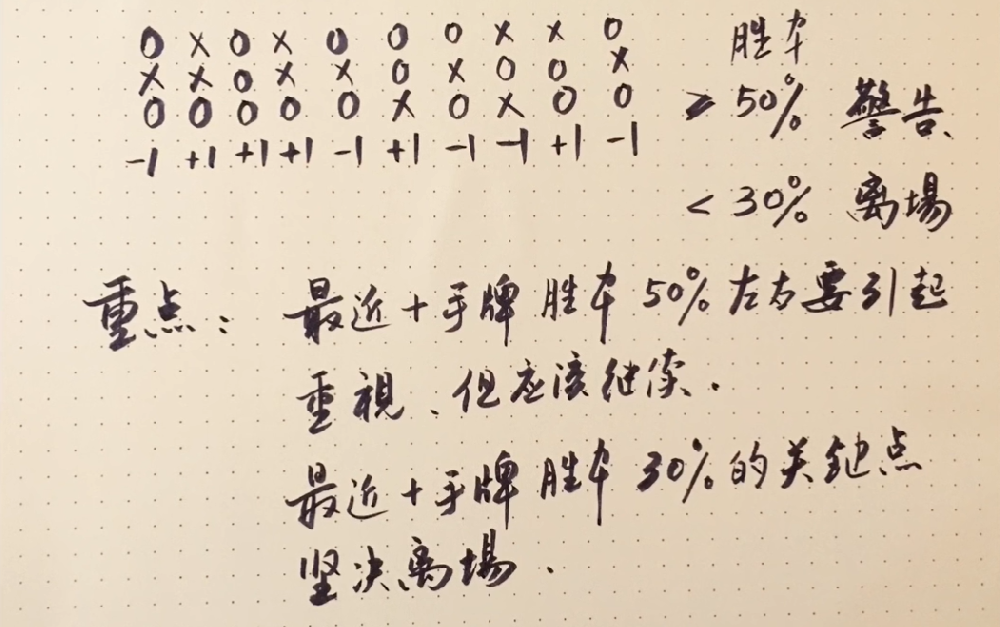 O X O X O O O X X O 胜率
X X O X X O X O O X
O O O O O X O X O O ≥ 50% 警告、
-1 +1 +1 +1 -1 +1 -1 -1 +1 -1
< 30% 离場
重点： 最近十手牌 胜率 50% 左右要引起
重視、但应该继续.
最近十手牌 胜率 30% 的关键点
坚决离場.